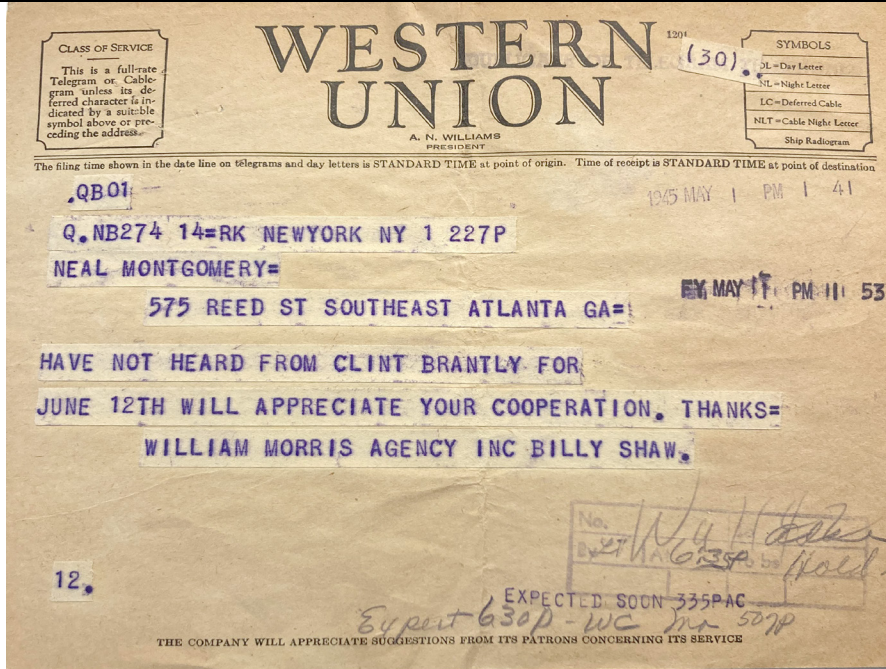 CLASS OF SERVICE
This is a full-rate
Telegram or Cable-
gram unless its de-
ferred character is in-
dicated by a suitable
symbol above or pre-
ceding the address.
WESTERN
UNION
A. N. WILLIAMS
PRESIDENT
1201
(30)..
SYMBOLS
DL=Day Letter
NL=Night Letter
LC=Deferred Cable
NLT=Cable Night Letter
Ship Radiogram
The filing time shown in the date line on telegrams and day letters is STANDARD TIME at point of origin. Time of receipt is STANDARD TIME at point of destination
.QB01
1945 MAY 1 PM 1 41
Q.NB274 14=RK NEWYORK NY 1 227P
NEAL MONTGOMERY=
MAY PM 53
575 REED ST SOUTHEAST ATLANTA GA=
HAVE NOT HEARD FROM CLINT BRANTLY FOR
JUNE 12TH WILL APPRECIATE YOUR COOPERATION. THANKS=
WILLIAM MORRIS AGENCY INC BILLY SHAW.
No.
By
635P
to be
Hold
12.
EXPECTED SOON 335PAC
Expect 630P - WC
THE COMPANY WILL APPRECIATE SUGGESTIONS FROM ITS PATRONS CONCERNING ITS SERVICE